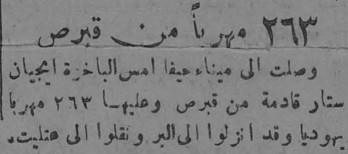 ٢٦٣ مهرباً من قبرص
وصلت الى ميناء حيفا امس الباخرة ايجيان
ستار قادمة من قبرص وعليها ٢٦٣ مهربا
يهوديا وقد انزلوا الى البر ونقلوا الى عتليت.